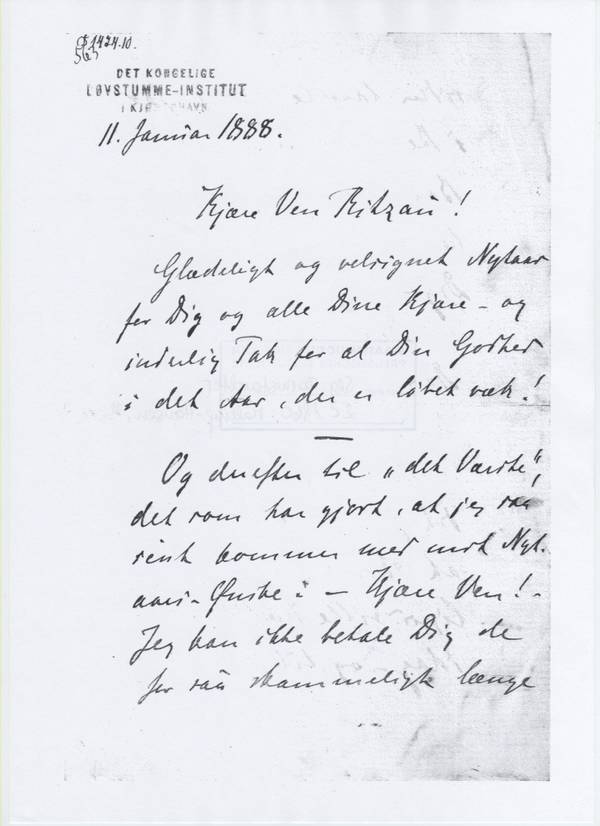 1424.10.
DET KONGELIGE
DØVSTUMME-INSTITUT
I KJØBENHAVN
11. Januar 1888.
Kjære Ven Ritzau!
Glædeligt og velsignet Nytaar
for Dig og alle Dine Kjære – og
inderlig Tak for al Din Godhed
i det Aar, der er løbet væk!
Og derefter til „det Værste",
det som har gjort, at jeg saa
sent kommer med mit Nyt-
aars-Ønske: – Kjære Ven! –
Jeg kan ikke betale Dig de
for saa skammeligt længe